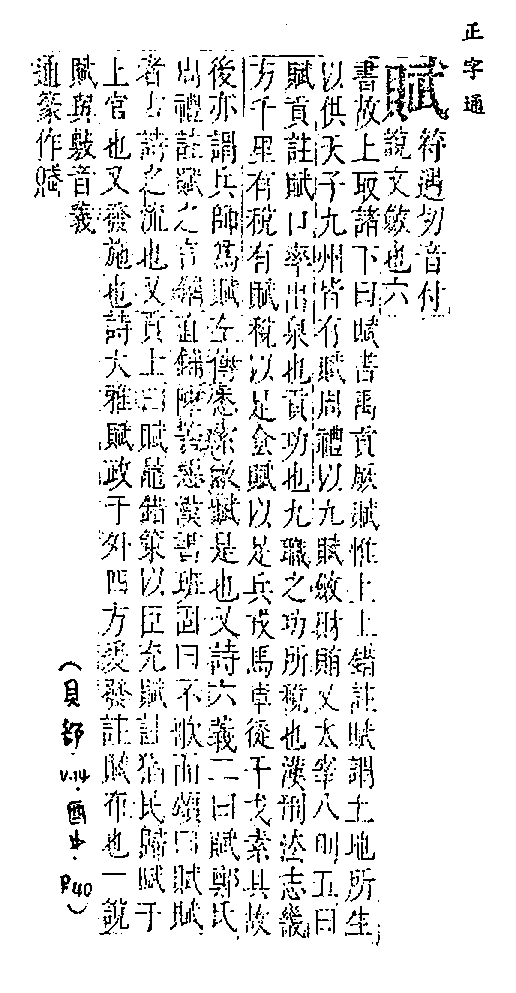 正字通
賦 符遇切音付
說文斂也六
書故上取諸下曰賦書禹貢厥賦惟上上錯註賦謂土地所生
以供天子九州皆有賦周禮以九賦斂財賄又太宰八則五曰
賦貢註賦口率出泉也貢功也九職之功所稅也漢刑法志畿
方千里有稅有賦稅以足食賦以足兵戎馬車徒干戈素具故
後亦謂兵師爲賦左傳悉索敝賦是也又詩六義二曰賦鄭氏
周禮註賦之言鋪直鋪陳善惡漢書班固曰不歌而頌曰賦賦
者古詩之流也又貢上曰賦鼂錯策以臣充賦註猶民歸賦于
上官也又發施也詩大雅賦政于外四方爰發註賦布也一說
賦與敷音義
通篆作賦
（貝部・V.14・酉中・P.40）